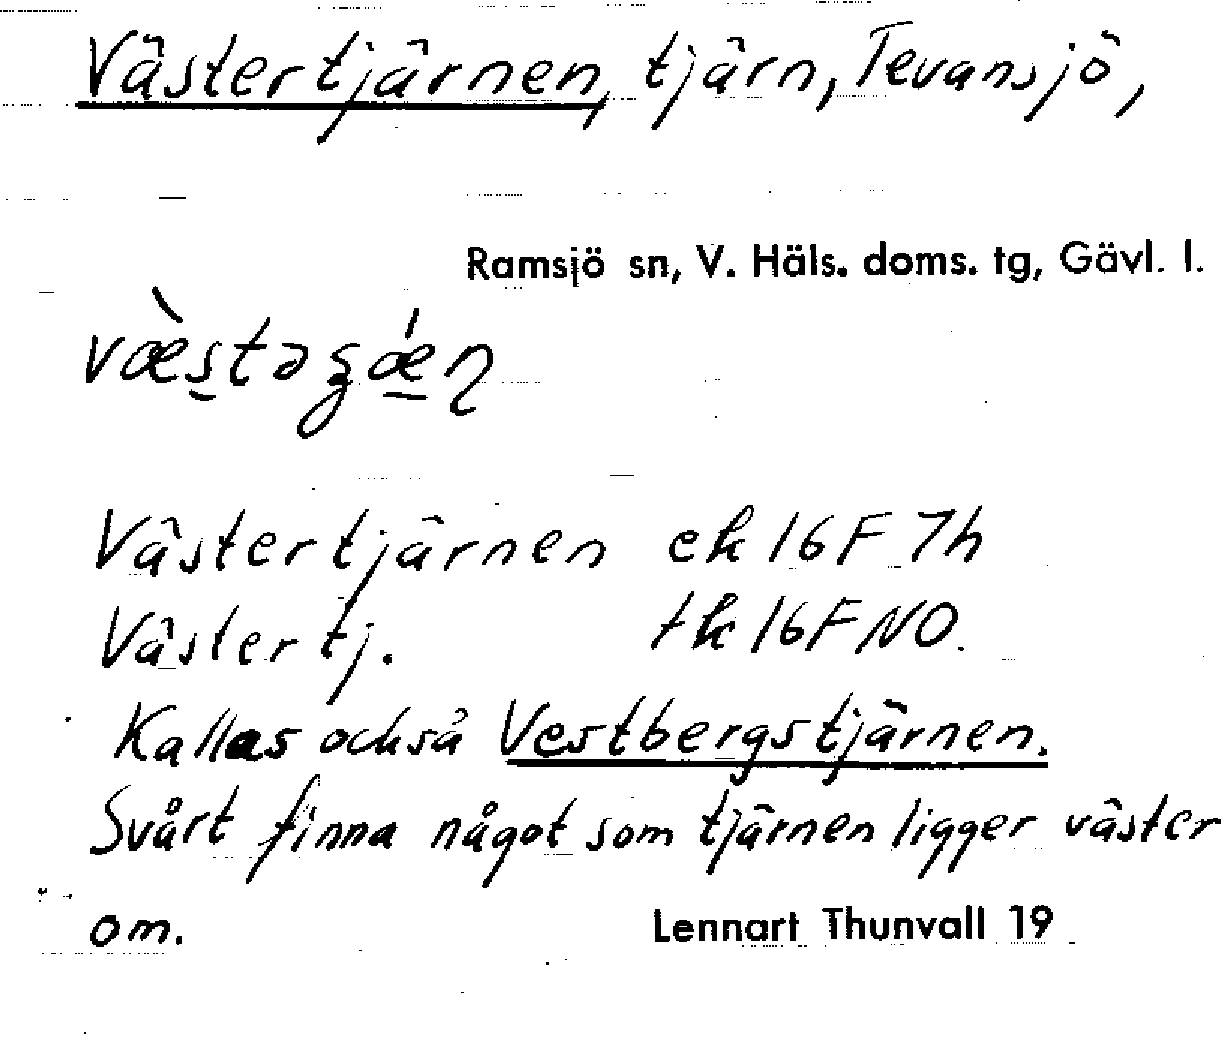 Västertjärnen, tjärn, Tevansjö,
Ramsjö sn, V. Häls. doms. tg, Gävl. l.
Västertjärnen ek 16F 7h
Väster tj. tk 16F NO.
Kallas också Vestbergstjärnen.
Svårt finna något som tjärnen ligger väster
om.
Lennart Thunvall 19